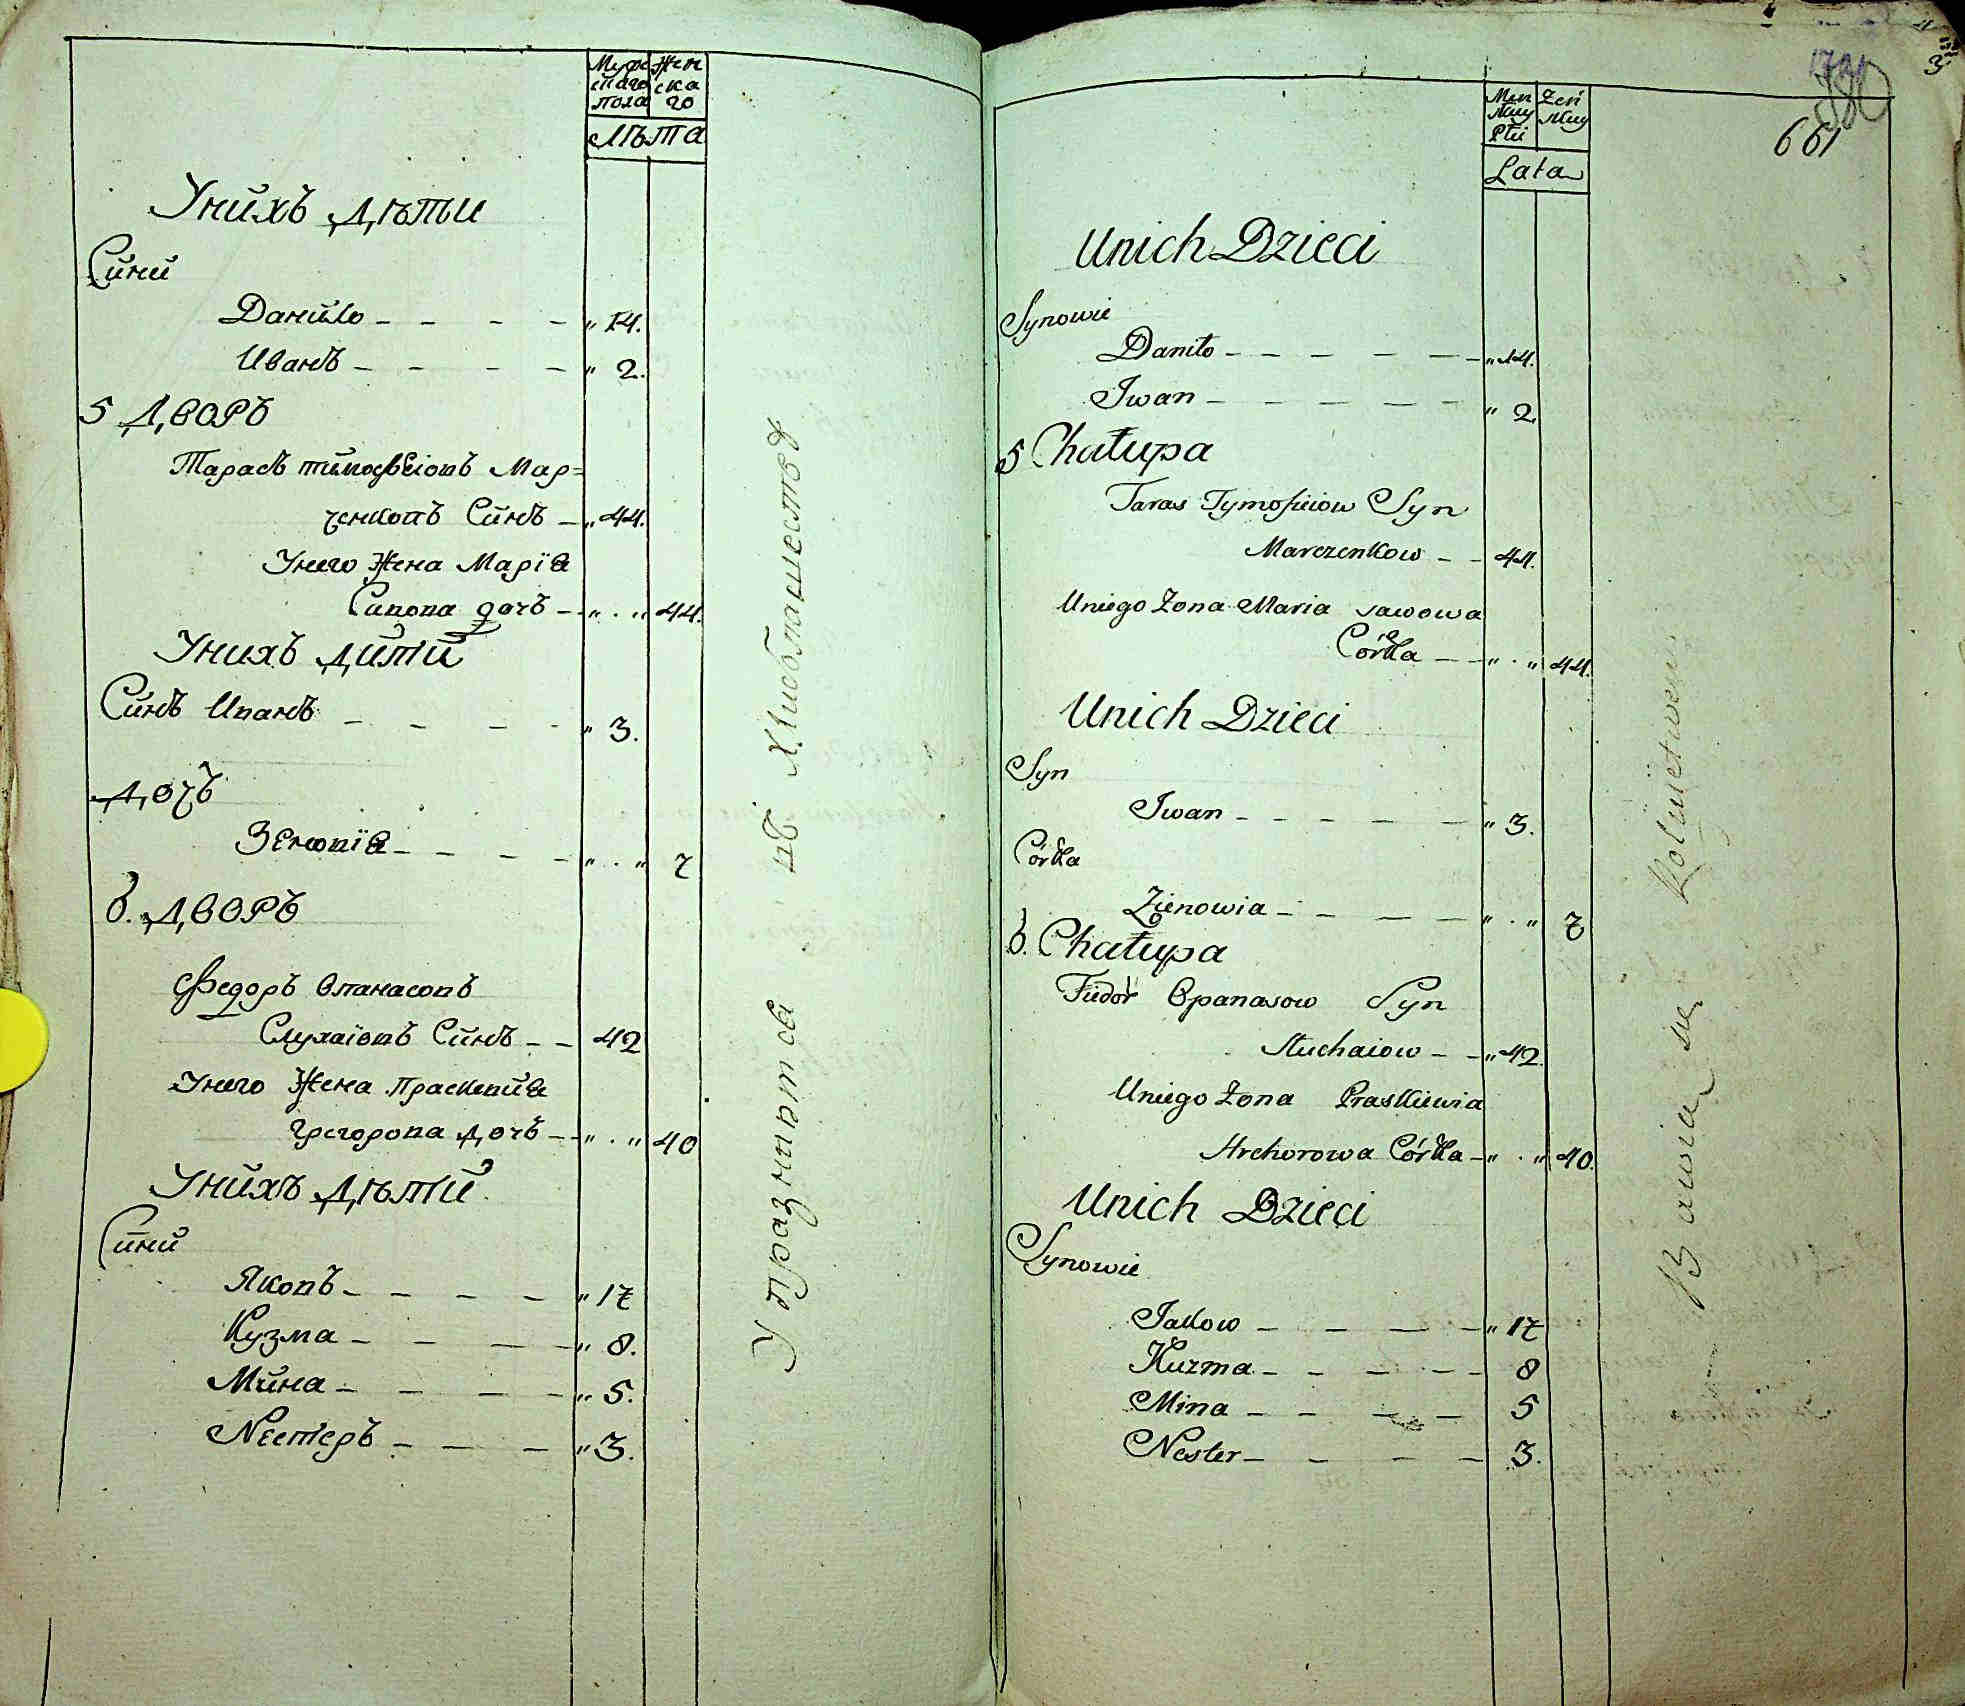 Мужескаго пола
Женскаго
Лѣта
Унихъ Дѣти
Сини
Данило - - - - „ 14.
Иванъ - - - - „ 2.
5 Дворъ
Тарасъ тимофѣіовъ Мар=
ченковъ Синъ - „ 44.
Унего Жена Маріа
Савова дочъ - „ . „ 44.
Унихъ Дити
Синъ Иванъ - - - - „ 3.
Дочъ
Зеновіа - - - - „ . „ 7
6. Дворъ
Федоръ Опанасовъ
Слухаіовъ Синъ - - 42
Унего Жена Прасковиа
Грегорова Дочъ - - „ . „ 40
Унихъ Дѣти
Сини
Яковъ - - - - „ 17
Кузма - - - - „ 8.
Мина - - - - „ 5.
Нестеръ - - - „ 3.
Упразнится въ Хлибопашествѣ
661
Lata
Unich Dzieci
Synowie
Daniło - - - - - - „ 14.
Iwan - - - - - - „ 2
5 Chałupa
Taras Tymofieiow Syn
Marczenkow - - 44.
Uniego Zona Maria sawowa
Córka - - „ . „ 44.
Unich Dzieci
Syn
Iwan - - - - - „ 3.
Córka
Zienowia - - - - „ . „ 7
6. Chałupa
Fiedor Opanasow Syn
Słuchaiow - - „ 42.
Uniego Zona Praskiewia
Hrehorowa Córka - „ . „ 40.
Unich Dzieci
Synowie
Jakow - - - - - „ 17
Kuzma - - - - - 8
Mina - - - - 5
Nester - - - - - 3.
Bawią się Rolnictwem